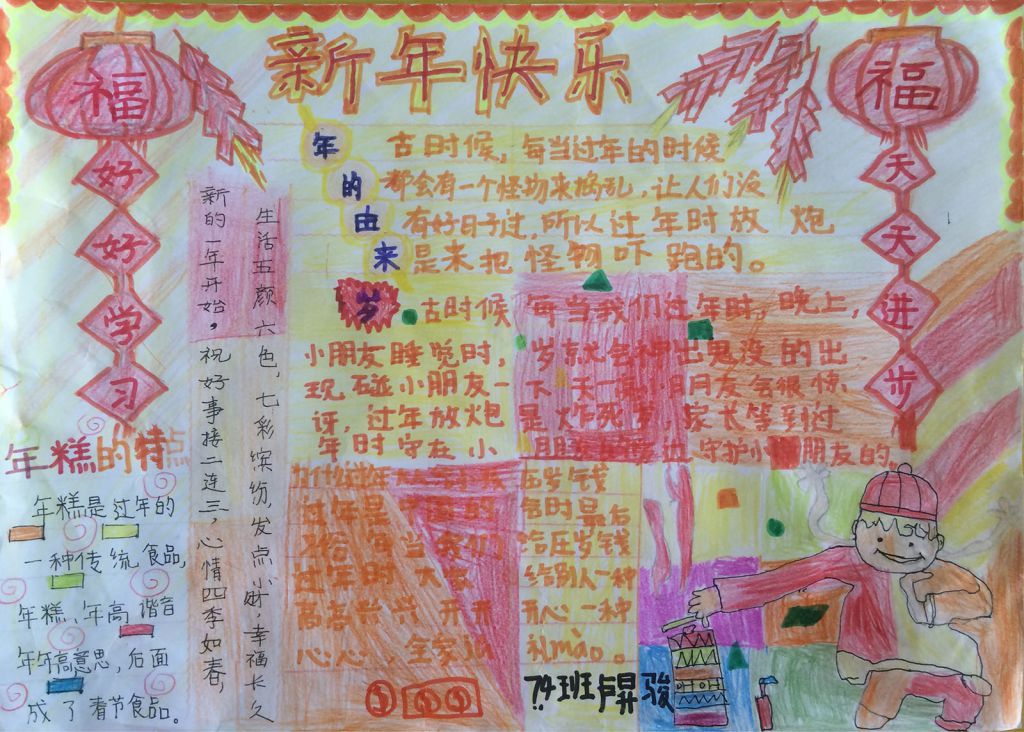 新年快乐
福
好
好
学
习
福
天
天
进
步
年
的
由
来
古时候，每当过年的时候
都会有一个怪物来捣乱，让人们没
有好日子过，所以过年时放炮
是来把怪物吓跑的。
岁
古时候每当我们过年时，晚上，
小朋友睡觉时，岁就会 出鬼没的出
现碰小朋友一下 天一 朋友会很惊
讶，过年放炮是炸死 家长等到过
年时守在小朋 边守护小朋友的。
新的一年开始，祝好事接二连三，心情四季如春，
生活五颜六色，七彩缤纷，发点小财，幸福长久
年糕的特点
年糕是过年的
一种传统食品，
年糕、年高谐音
年年高意思，后面
成了春节食品。
压岁钱
过年是 的 时最后
当我们 给压岁钱
过年时 大 给别人一种
高高兴兴 开开 开心一种
心心 全家 礼mào。
74班卢昇骏